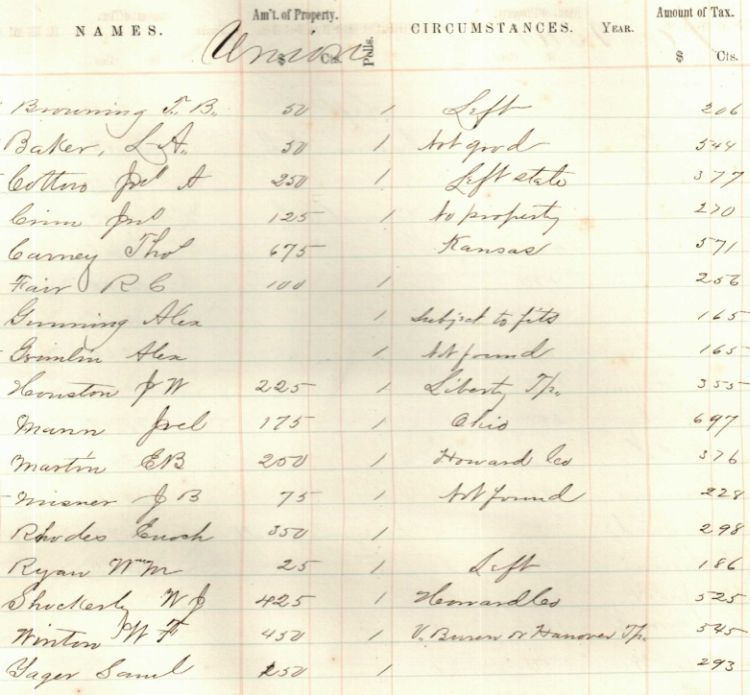 NAMES. Am't. of Property. $ Cts. Polls. CIRCUMSTANCES. YEAR. Amount of Tax. $ Cts.
Union
Browning T. B. 50 1 Left 206
Baker, L. A. 50 1 Not good 544
Jno A 250 1 Left state 377
Crim Jno 125 1 No property 270
Carney Thos 675 Kansas 571
Fair R C 100 1 256
Gunning Alex 1 Subject to fits 165
Alex 1 Not found 165
Houston J W 225 1 Liberty Tp. 355
Mann Joel 175 1 Ohio 697
Martin E B 200 1 Howard Co 376
Misner J B 75 1 Not found 228
Rhodes Enoch 350 1 298
Ryan Wm M 25 1 Left 186
W J 425 1 Howard Co 525
Winton W F 450 1 V. Buren or Hanover Tp. 545
Yager Saml 250 1 293